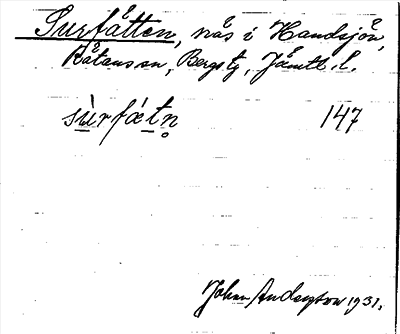 Surfåtten, näs i Handsjön,
Råtans sn, Bergs tg, Jämtl. l.
sùrfǻtn̥ 147
Johan Anderzon 1931.